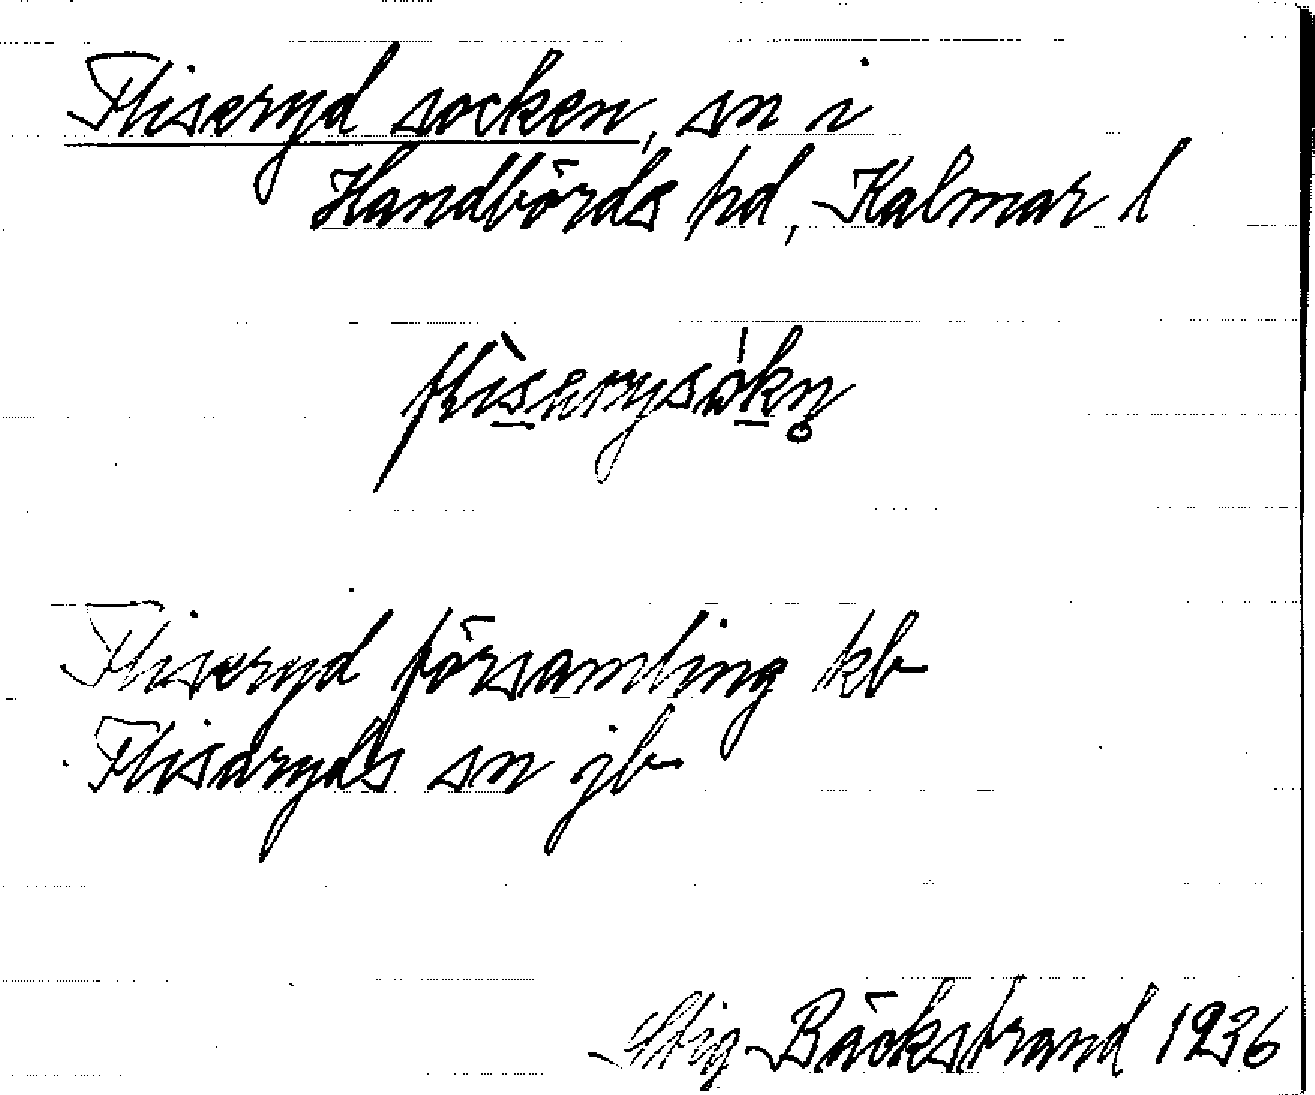 Fliseryd socken, sn i
Handbörds hd, Kalmar l
Fliseryd församling kb
Flisaryds sn jb
Stig Bäckstrand 1936